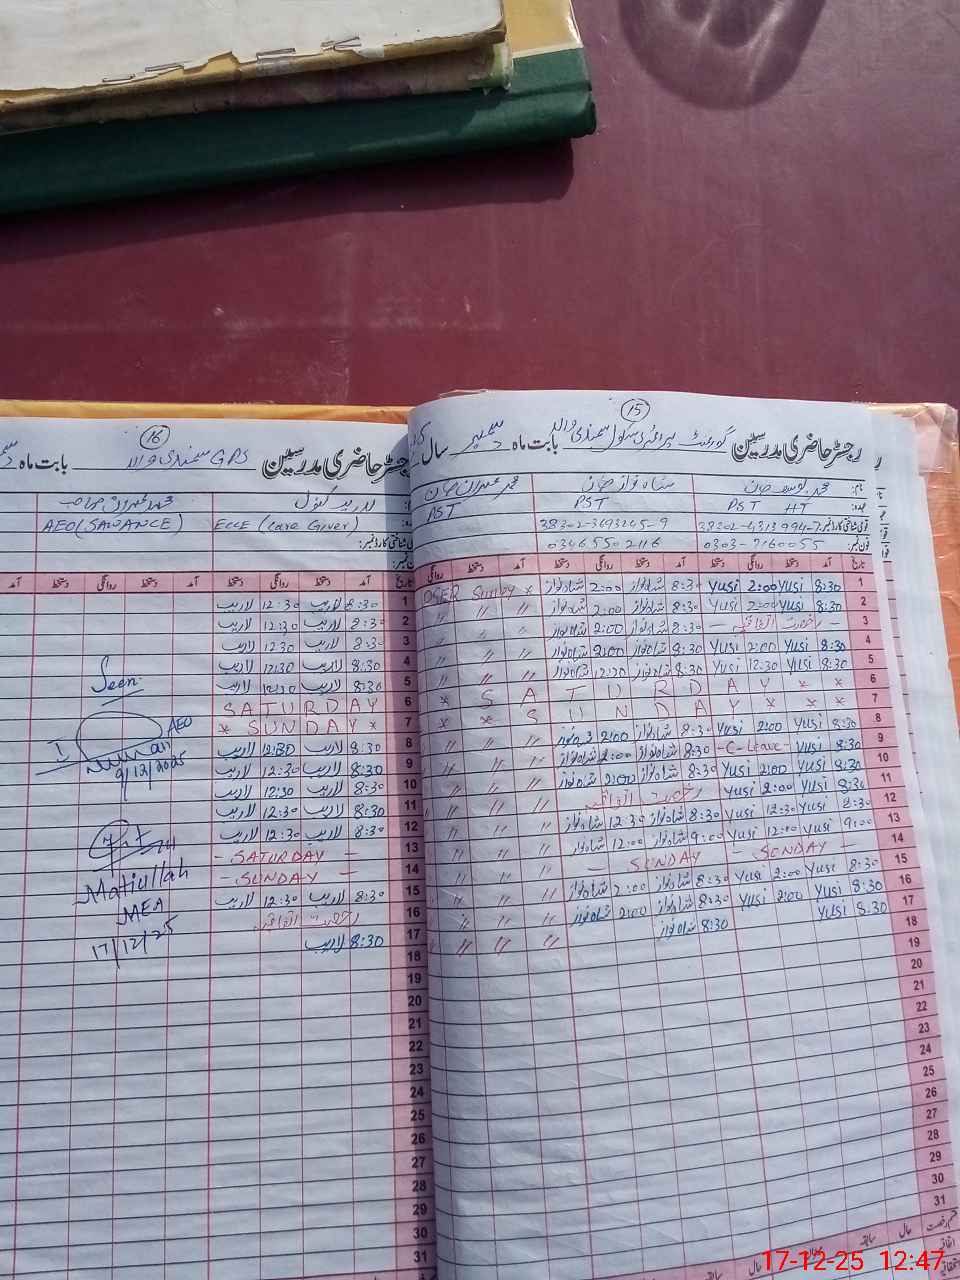 15
رجسٹر حاضری مدرسین گورنمنٹ پرائمری سکول بابت ماہ دسمبر سال
نام: محمد یوسف خان شاہ نواز خان محمد عمران خان
عہدہ: PST HT PST PST
قومی شناختی کارڈ نمبر: 38302-4313994-7 38302-3693245-9
فون نمبر: 0303-7160055 0346 550 2116
تاریخ آمد دستخط روانگی دستخط آمد دستخط روانگی دستخط آمد دستخط روانگی
1 8:30 Yusi 2:00 Yusi 8:30 شاہ نواز 2:00 شاہ نواز *
2 8:30 Yusi 2:00 Yusi 8:30 شاہ نواز 2:00 شاہ نواز " " "
3 — رخصت اتفاقیہ — 8:30 شاہ نواز 2:00 شاہ نواز " " "
4 8:30 Yusi 2:00 Yusi 8:30 شاہ نواز 2:00 شاہ نواز " " "
5 8:30 Yusi 12:30 Yusi 8:30 شاہ نواز 12:30 شاہ نواز " " "
6 * S A T U R D A Y * * *
7 * * * S U N D A Y * * *
8 8:30 Yusi 2:00 Yusi 8:30 شاہ نواز 2:00 شاہ نواز " " "
9 - C - Leave - 8:30 شاہ نواز 2:00 شاہ نواز " " "
10 8:30 Yusi 2:00 Yusi 8:30 شاہ نواز 2:00 شاہ نواز " " "
11 8:30 Yusi 2:00 Yusi رخصت اتفاقیہ " " "
12 8:30 Yusi 12:30 Yusi 8:30 شاہ نواز 12:30 شاہ نواز " " "
13 9:00 Yusi 12:00 Yusi 9:00 شاہ نواز 12:00 شاہ نواز " " "
14 - SUNDAY - SUNDAY " " "
15 8:30 Yusi 2:00 Yusi 8:30 شاہ نواز 2:00 شاہ نواز " " "
16 8:30 Yusi 2:00 Yusi 8:30 شاہ نواز 2:00 شاہ نواز " " "
8:30 Yusi 8:30 شاہ نواز " " "
18
19
20
21
22
23
24
25
26
27
28
29
30
31
16
رجسٹر حاضری مدرسین GPS بابت ماہ
لاریب کنول محمد عمران صاحب
ECCE (Care Giver) AEO (SAWANCE)
تاریخ آمد دستخط روانگی دستخط آمد دستخط روانگی دستخط آمد
1 8:30 لاریب 12:30 لاریب
2 8:30 لاریب 12:30 لاریب
3 8:30 لاریب 12:30 لاریب
4 8:30 لاریب 12:30 لاریب
5 8:30 لاریب 12:30 لاریب
6 SATURDAY
7 * SUNDAY *
8 8:30 لاریب 12:30 لاریب
9 8:30 لاریب 12:30 لاریب
10 8:30 لاریب 12:30 لاریب
11 8:30 لاریب 12:30 لاریب
12 8:30 لاریب 12:30 لاریب
13 - SATURDAY -
14 - SUNDAY -
15 8:30 لاریب 12:30 لاریب
16 رخصت اتفاقیہ
17 8:30 لاریب
18
19
20
21
22
23
24
25
26
27
28
29
30
31
Seen
AEO
9/12/2025
Matiullah
MEA
17/12/25
17-12-25 12:47